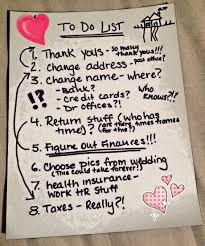 TO DO LIST
1. Thank yous - so many thank yous!!!
2. Change address - post office?
3. Change name - where?
- Bank?
!? - credit cards? WHO KNOWS?!
- Dr offices?!
4. Return stuff (who has
time?) (are there times frames for this?)
5. Figure out Finances!!!
6. Choose pics from wedding
(This could take forever!)
7. health insurance -
Work HR Stuff
8. Taxes - Really?!